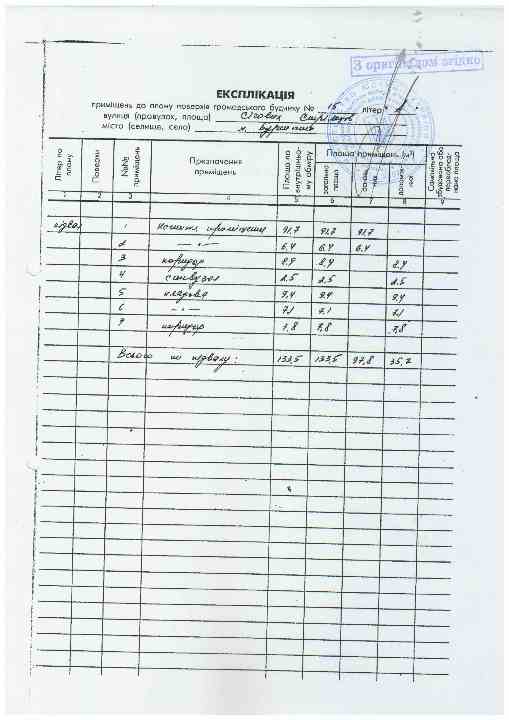 З оригіналом згідно
ЕКСПЛІКАЦІЯ
приміщень до плану поверхів громадського будинку № 15 літер
вулиця (провулок, площа) Січових Стрільців
місто (селище, село) м. Бурштин
Літер по плану | Поверхи | №№ приміщень | Призначення приміщень | Площа по внутрішньому обміру | Площа приміщень (м²) | загальна площа | основна | допоміжної | Самовільно збудована або переобладнана площа
1 2 3 4 5 6 7 8 9
підвал 1 приміщення 91,7 91,7 91,7
2 — „ — 6,4 6,4 6,4
3 коридор 8,4 8,4
4 санвузол 2,5 2,5 2,5
5 кладова 9,4 9,4 9,4
6 — „ — 7,1 7,1 7,1
7 коридор 7,8 7,8 7,8
Всього по підвалу: 133,5 133,5 97,8 35,7